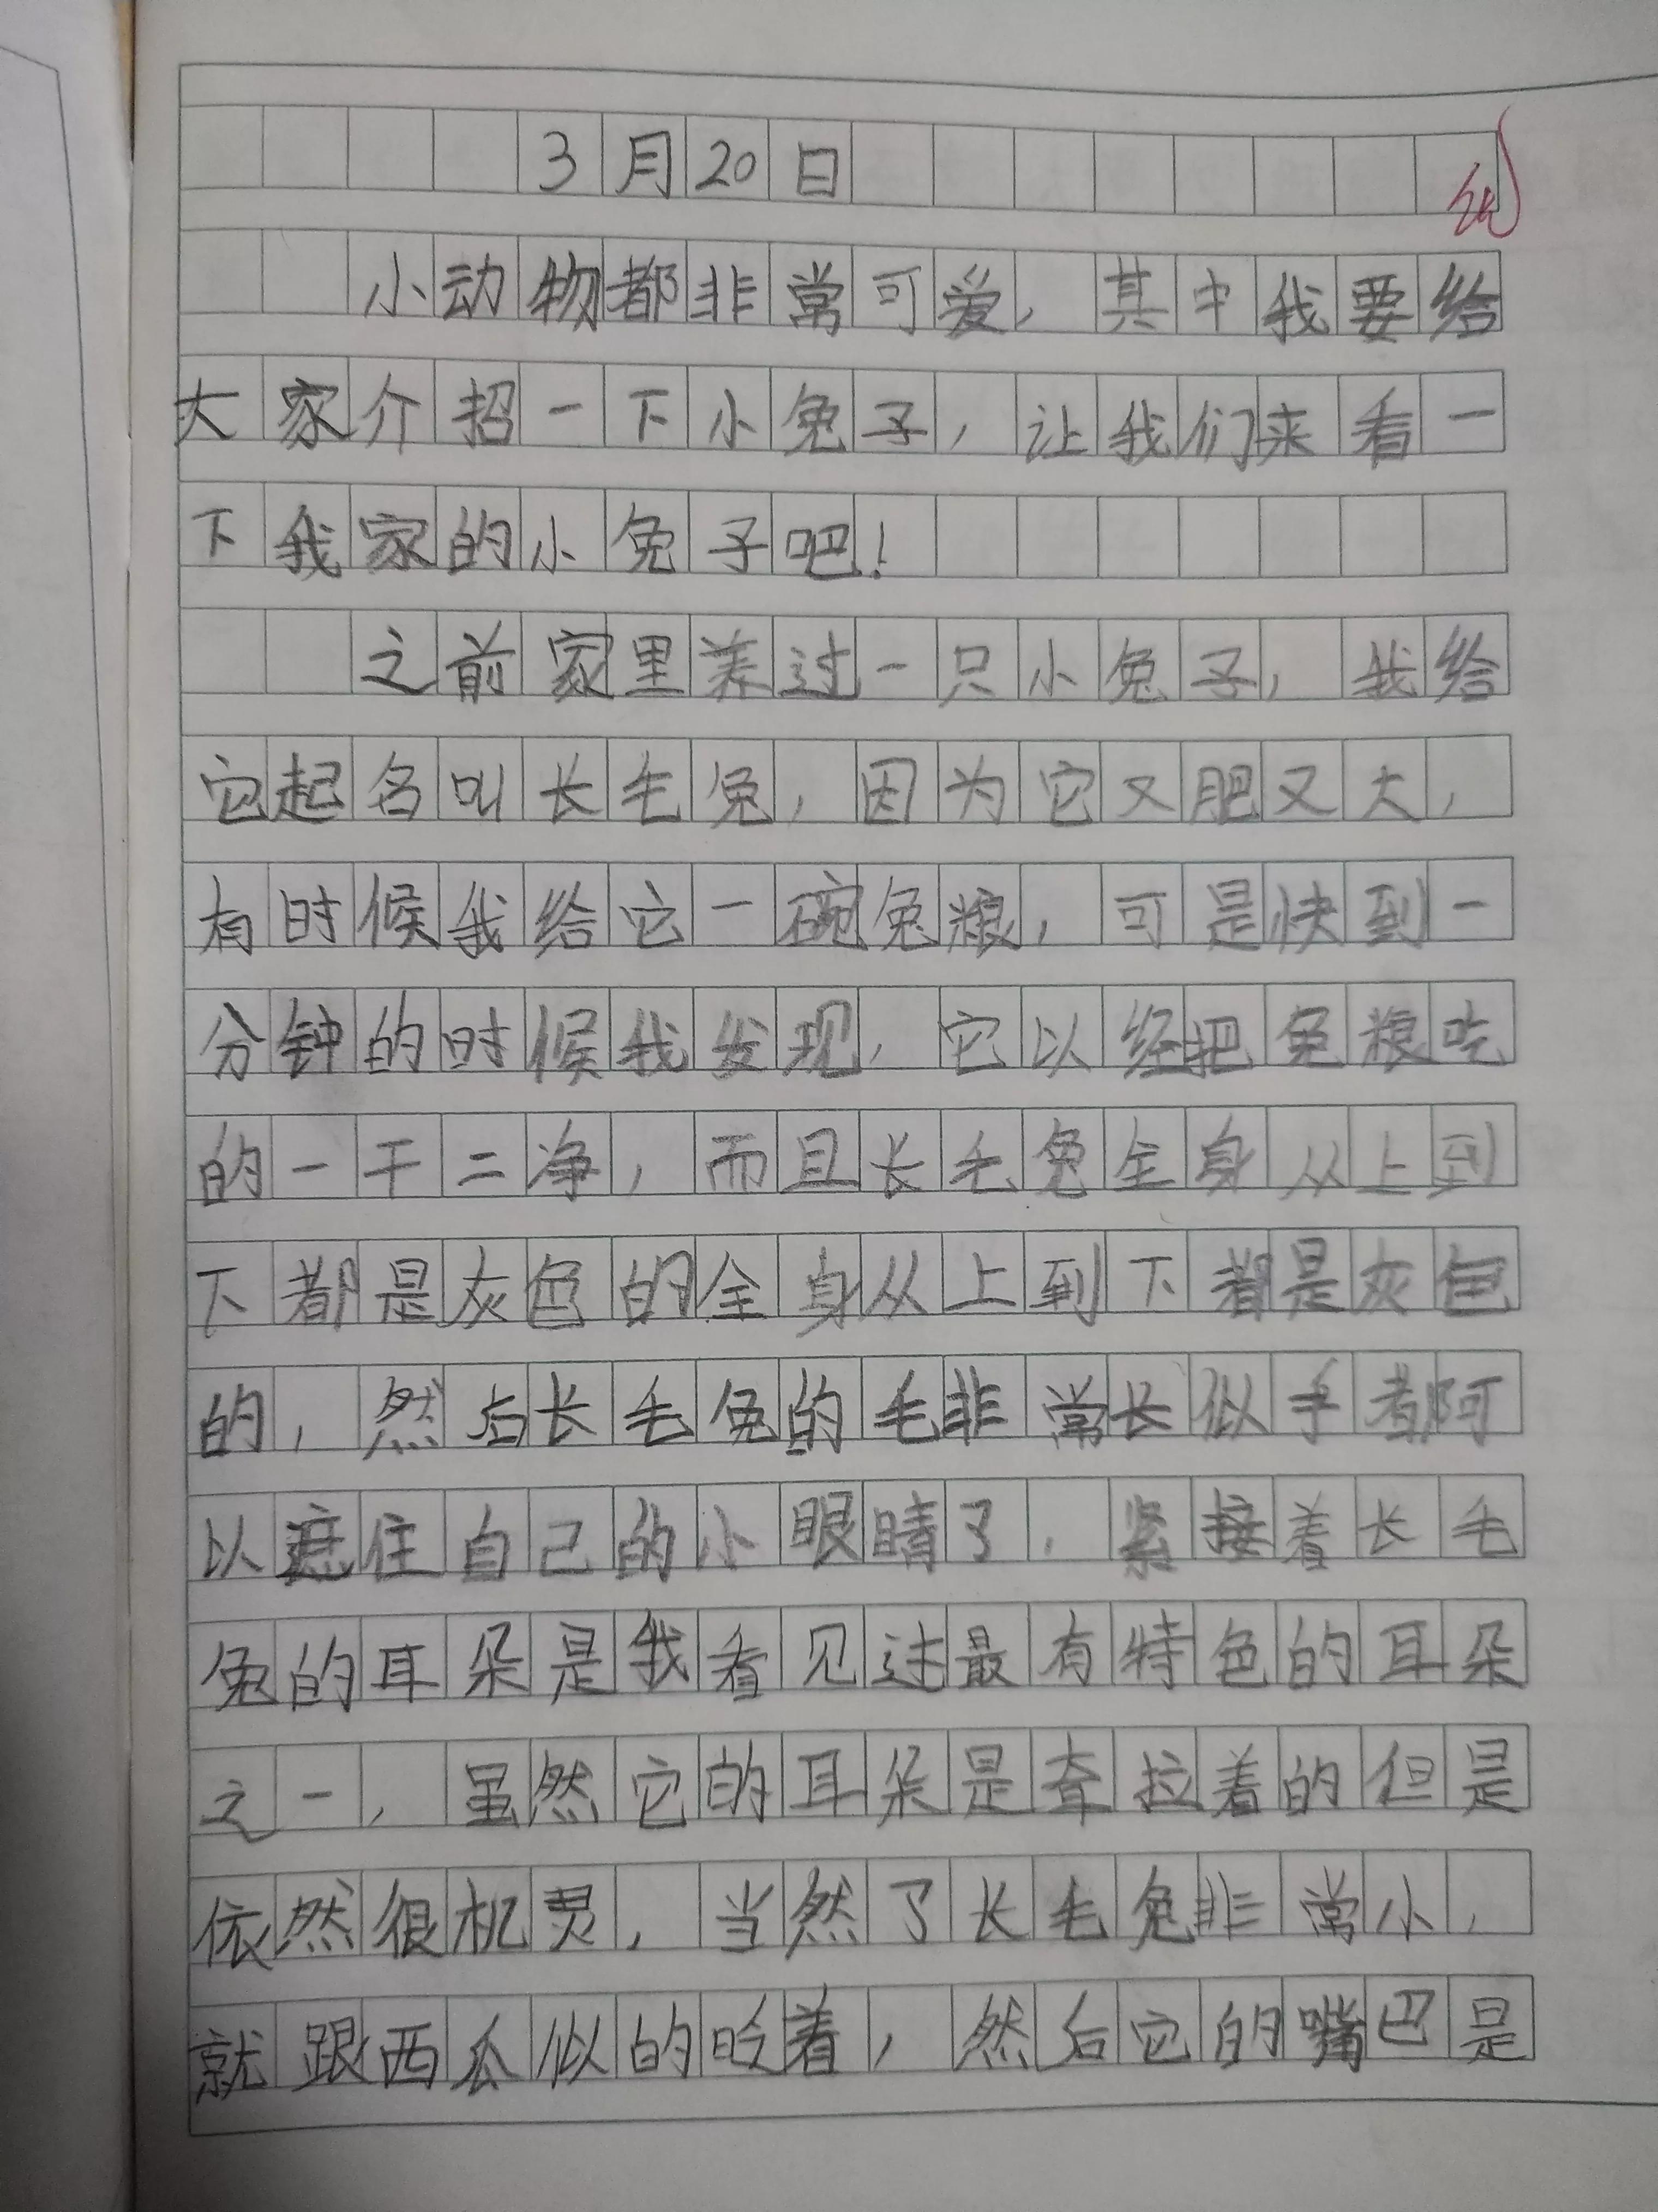 3月20日
小动物都非常可爱，其中我要给
大家介招一下小兔子，让我们来看一
下我家的小兔子吧！
之前家里养过一只小兔子，我给
它起名叫长毛兔，因为它又肥又大，
有时候我给它一碗兔粮，可是快到一
分钟的时候我发现，它以经把兔粮吃
的一干二净，而且长毛兔全身从上到
下都是灰色的全身从上到下都是灰色
的，然后长毛兔的毛非常长似乎都阿
以遮住自己的小眼睛了，紧接着长毛
兔的耳朵是我看见过最有特色的耳朵
之一，虽然它的耳朵是牵拉着的但是
依然很机灵，当然了长毛兔非常小，
就跟西瓜似的 着，然后它的嘴巴是